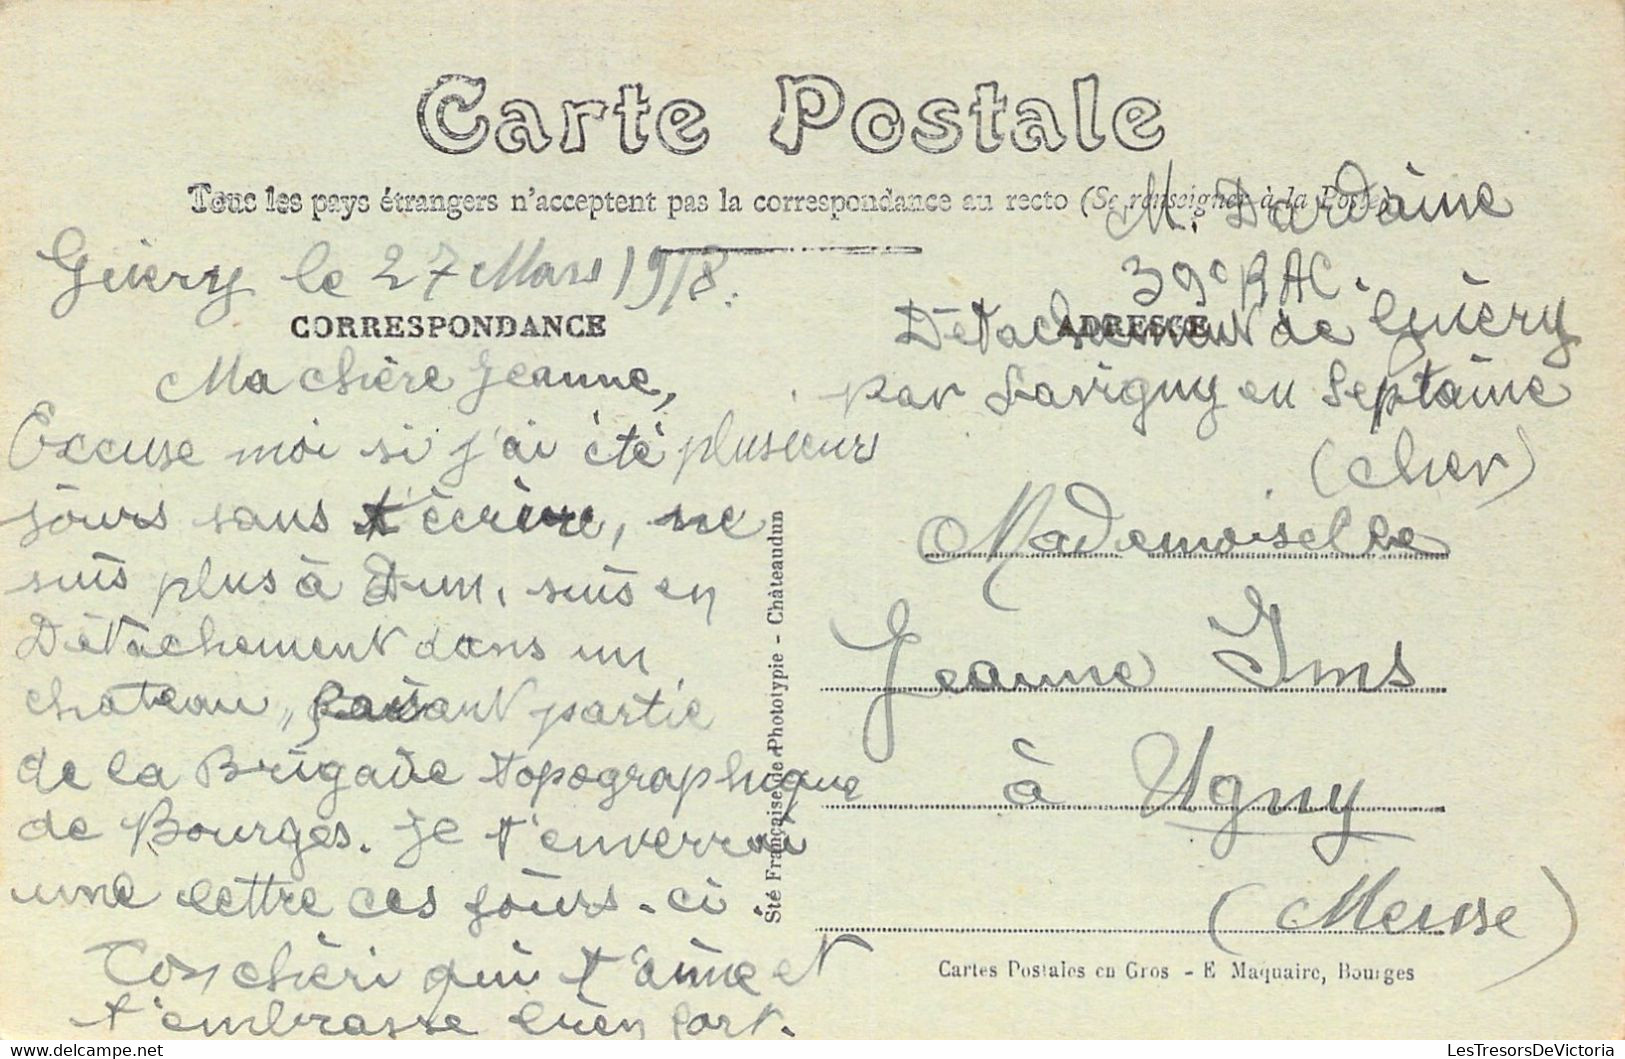 Carte Postale
Tous les pays étrangers n'acceptent pas la correspondance au recto (Se renseigner à la Poste)
Guery le 27 Mars 1918.
CORRESPONDANCE
Ma chère Jeanne,
Excuse moi si j'ai été plusieurs
jours sans t'écrire, ne
suis plus à Dun, suis en
Détachement dans un
chateau, faisant partie
de la Brigade topographique
de Bourges. je t'enverrai
une lettre ces jours-ci
Ton chéri qui t'aime et
t'embrasse bien fort.
Sté Française de Phototypie - Châteaudun
M. Dardaine
39e RAC.
ADRESSE
Détachement de Guery
par Savigny en Septaine
(Cher)
Mademoiselle
Jeanne Ims
à Ugny
(Meuse)
Cartes Postales en Gros - E Maquaire, Bourges
LesTresorsDeVictoria